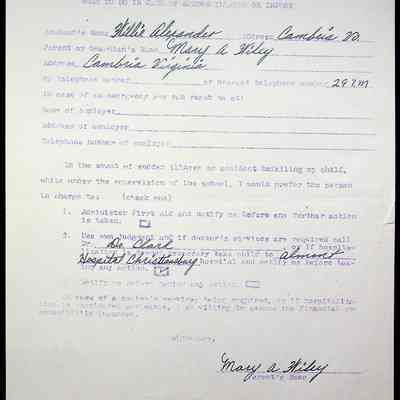 WHAT TO DO IN CASE OF SUDDEN ILLNESS OR INJURY
Student's Name Willie Alexander Address Cambria Va.
Parent or Guardian's Name Mary A Wiley
Address Cambria Virginia
My telephone number or nearest telephone number 297M
In case of an emergency you can reach me at:
Name of employer
Address of employer
Telephone number of employer
In the event of sudden illness or accident befalling my child,
while under the supervision of the school, I would prefer the person
in charge to: (check one)
1. Administer First Aid and notify me before any further action
is taken.
2. Use own judgment and if doctor's services are required call
Dr. Clark, or if hospita-
lization is necessary take child to Almond
Hospital Christiansburg hospital and notify me before tak-
ing any action.
Notify me before taking any action.
In case of a doctor's service being required, or if hospitaliza-
tion is considered advisable, I am willing to assume the financial re-
sponsibility incurred.
Mary A Wiley
Parent's Name